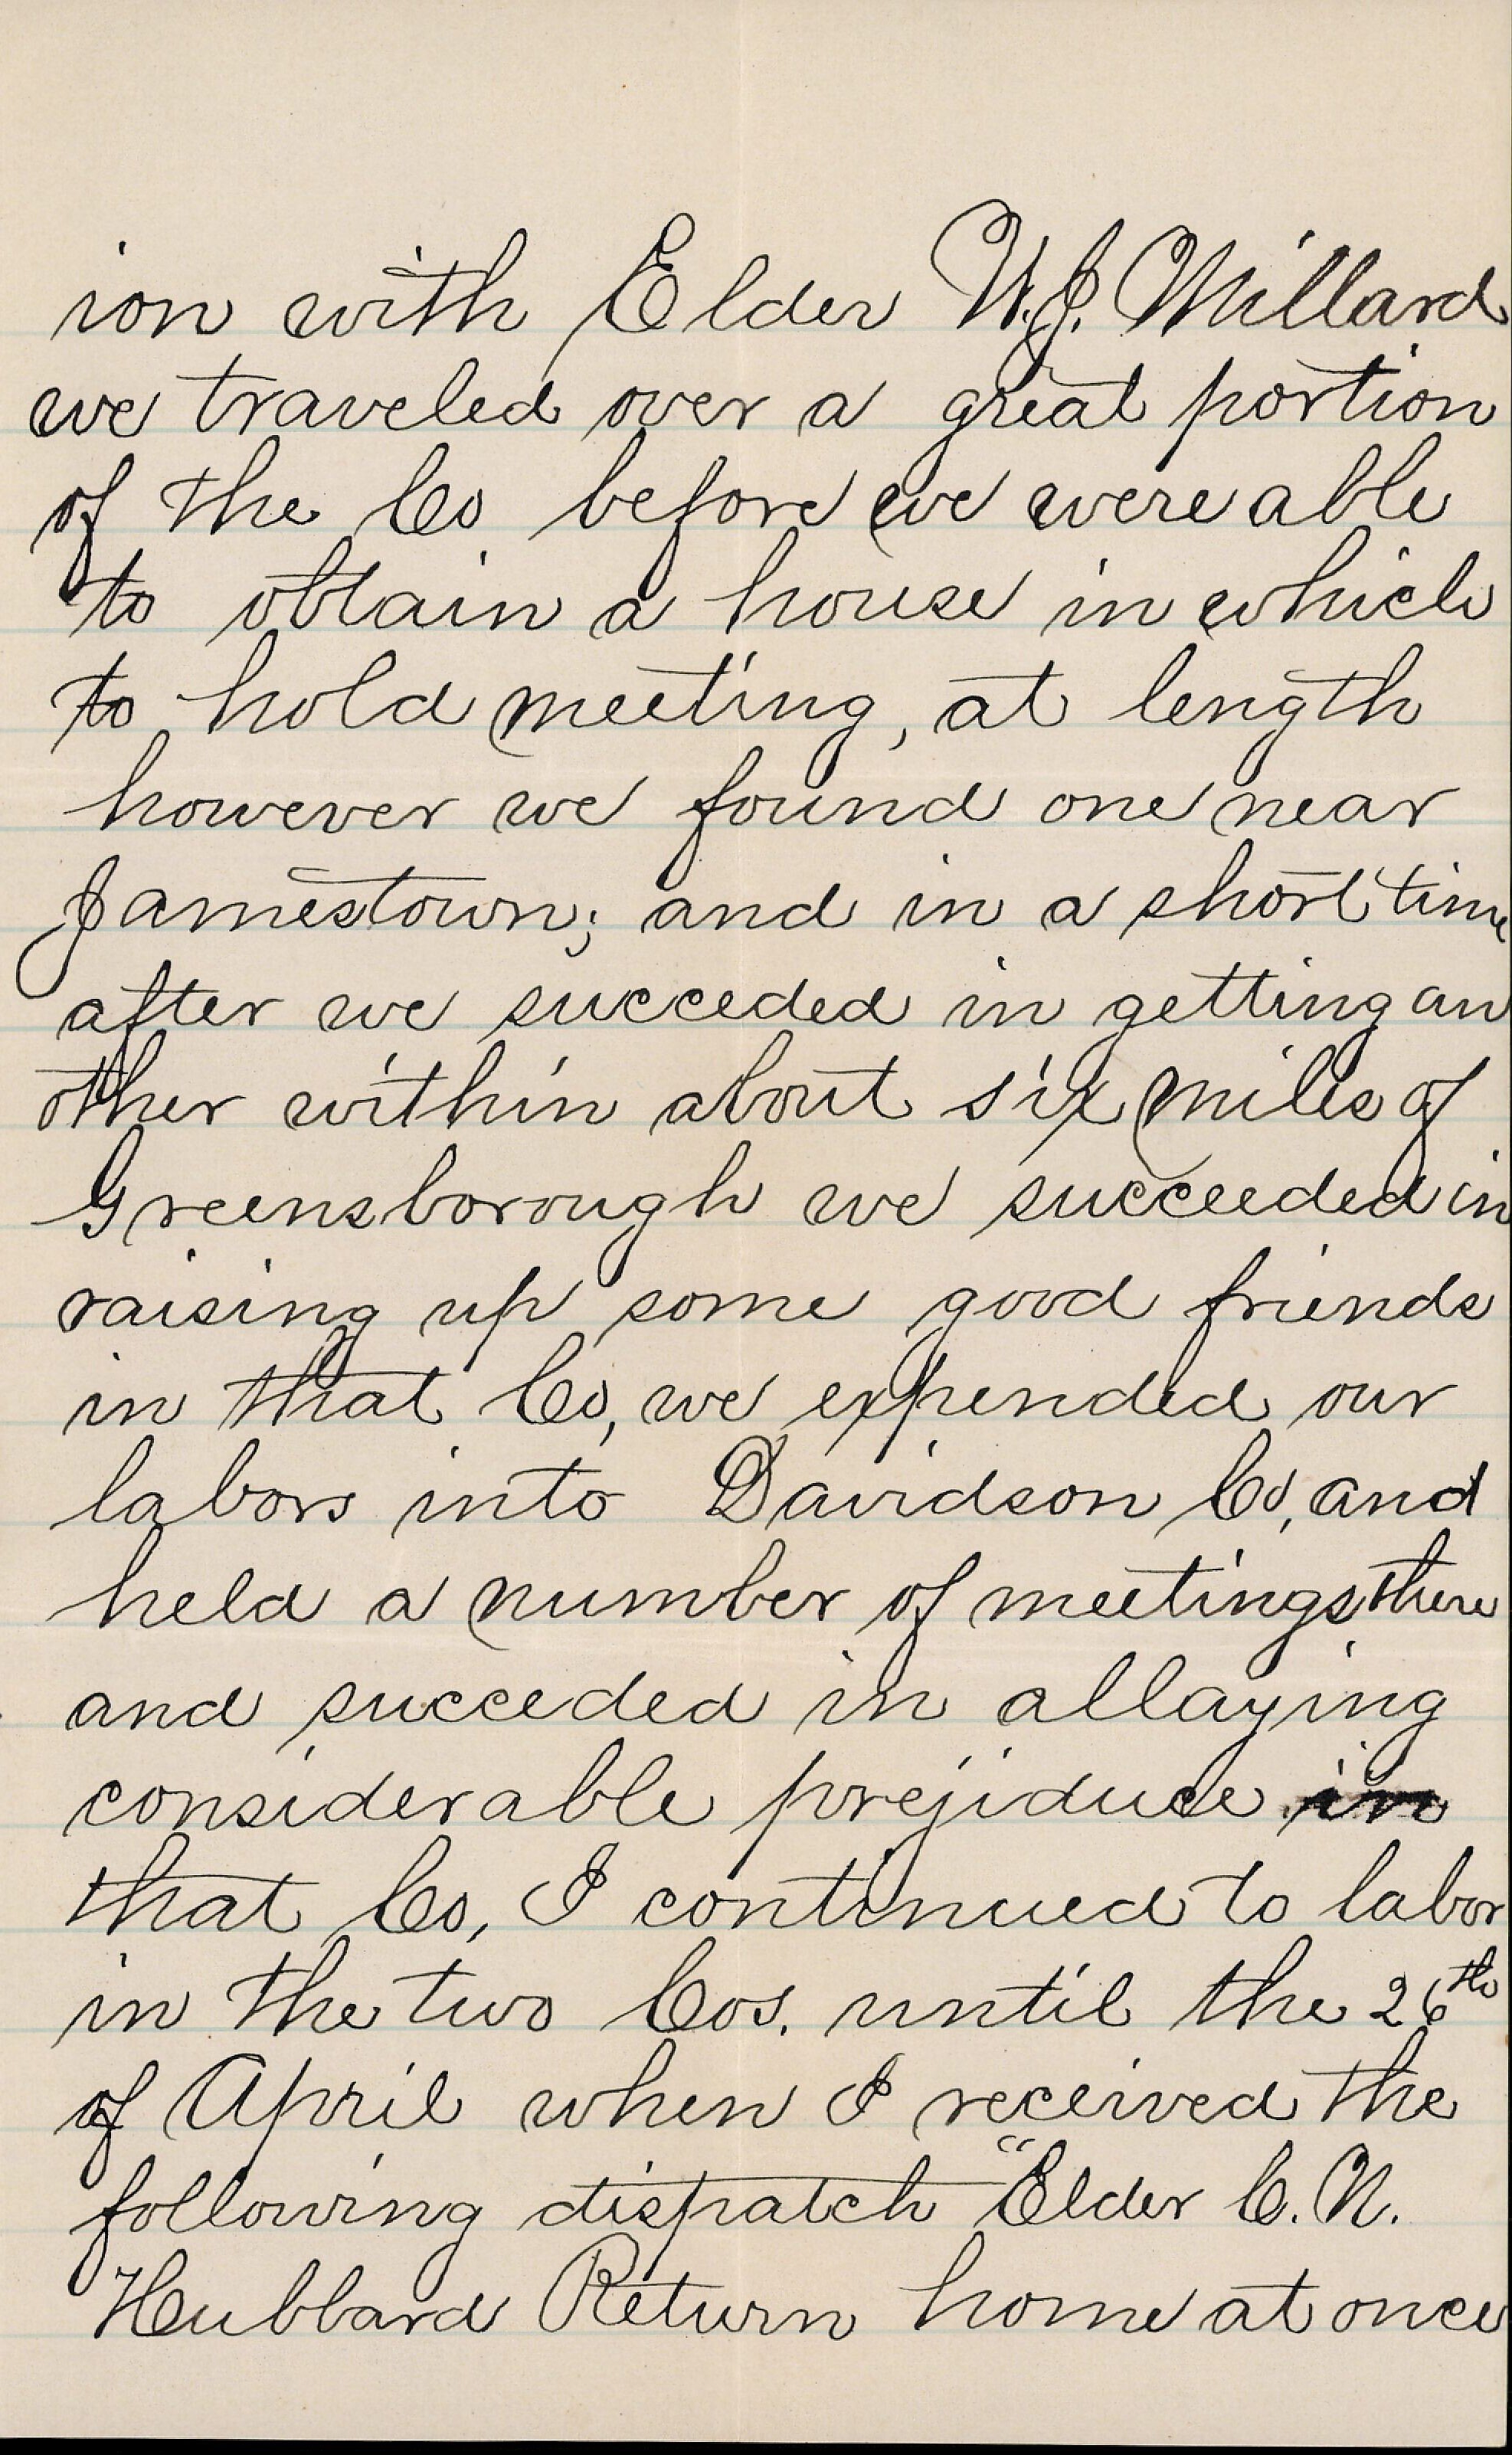 ion with Elder W.J. Millard
we traveled over a great portion
of the Co before we were able
to obtain a house in which
to hold meeting, at length
however we found one near
Jamestown; and in a short time
after we succeded in getting an
other within about six miles of
Greensborough we succeeded in
raising up some good friends
in that Co, we expended our
labors into Davidson Co, and
held a number of meetings there
and succeded in allaying
considerable prejiduce in
that Co, I continued to labor
in the two Cos. until the 26th
of April when I received the
following dispatch "Elder C. N.
Hubbard Return home at once